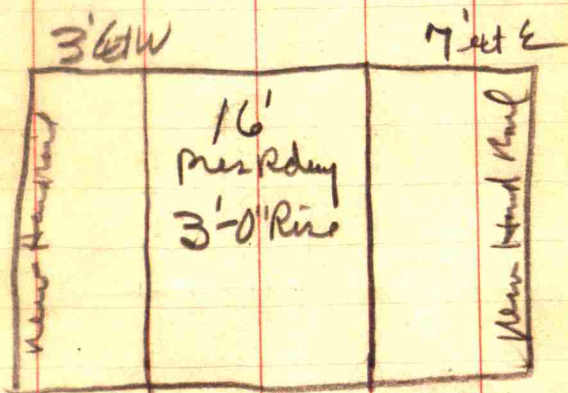 3' Ext W
7' ext E
New Handrail
16'
Pres Rdwy
3'-0" Rise
New Hand Rail